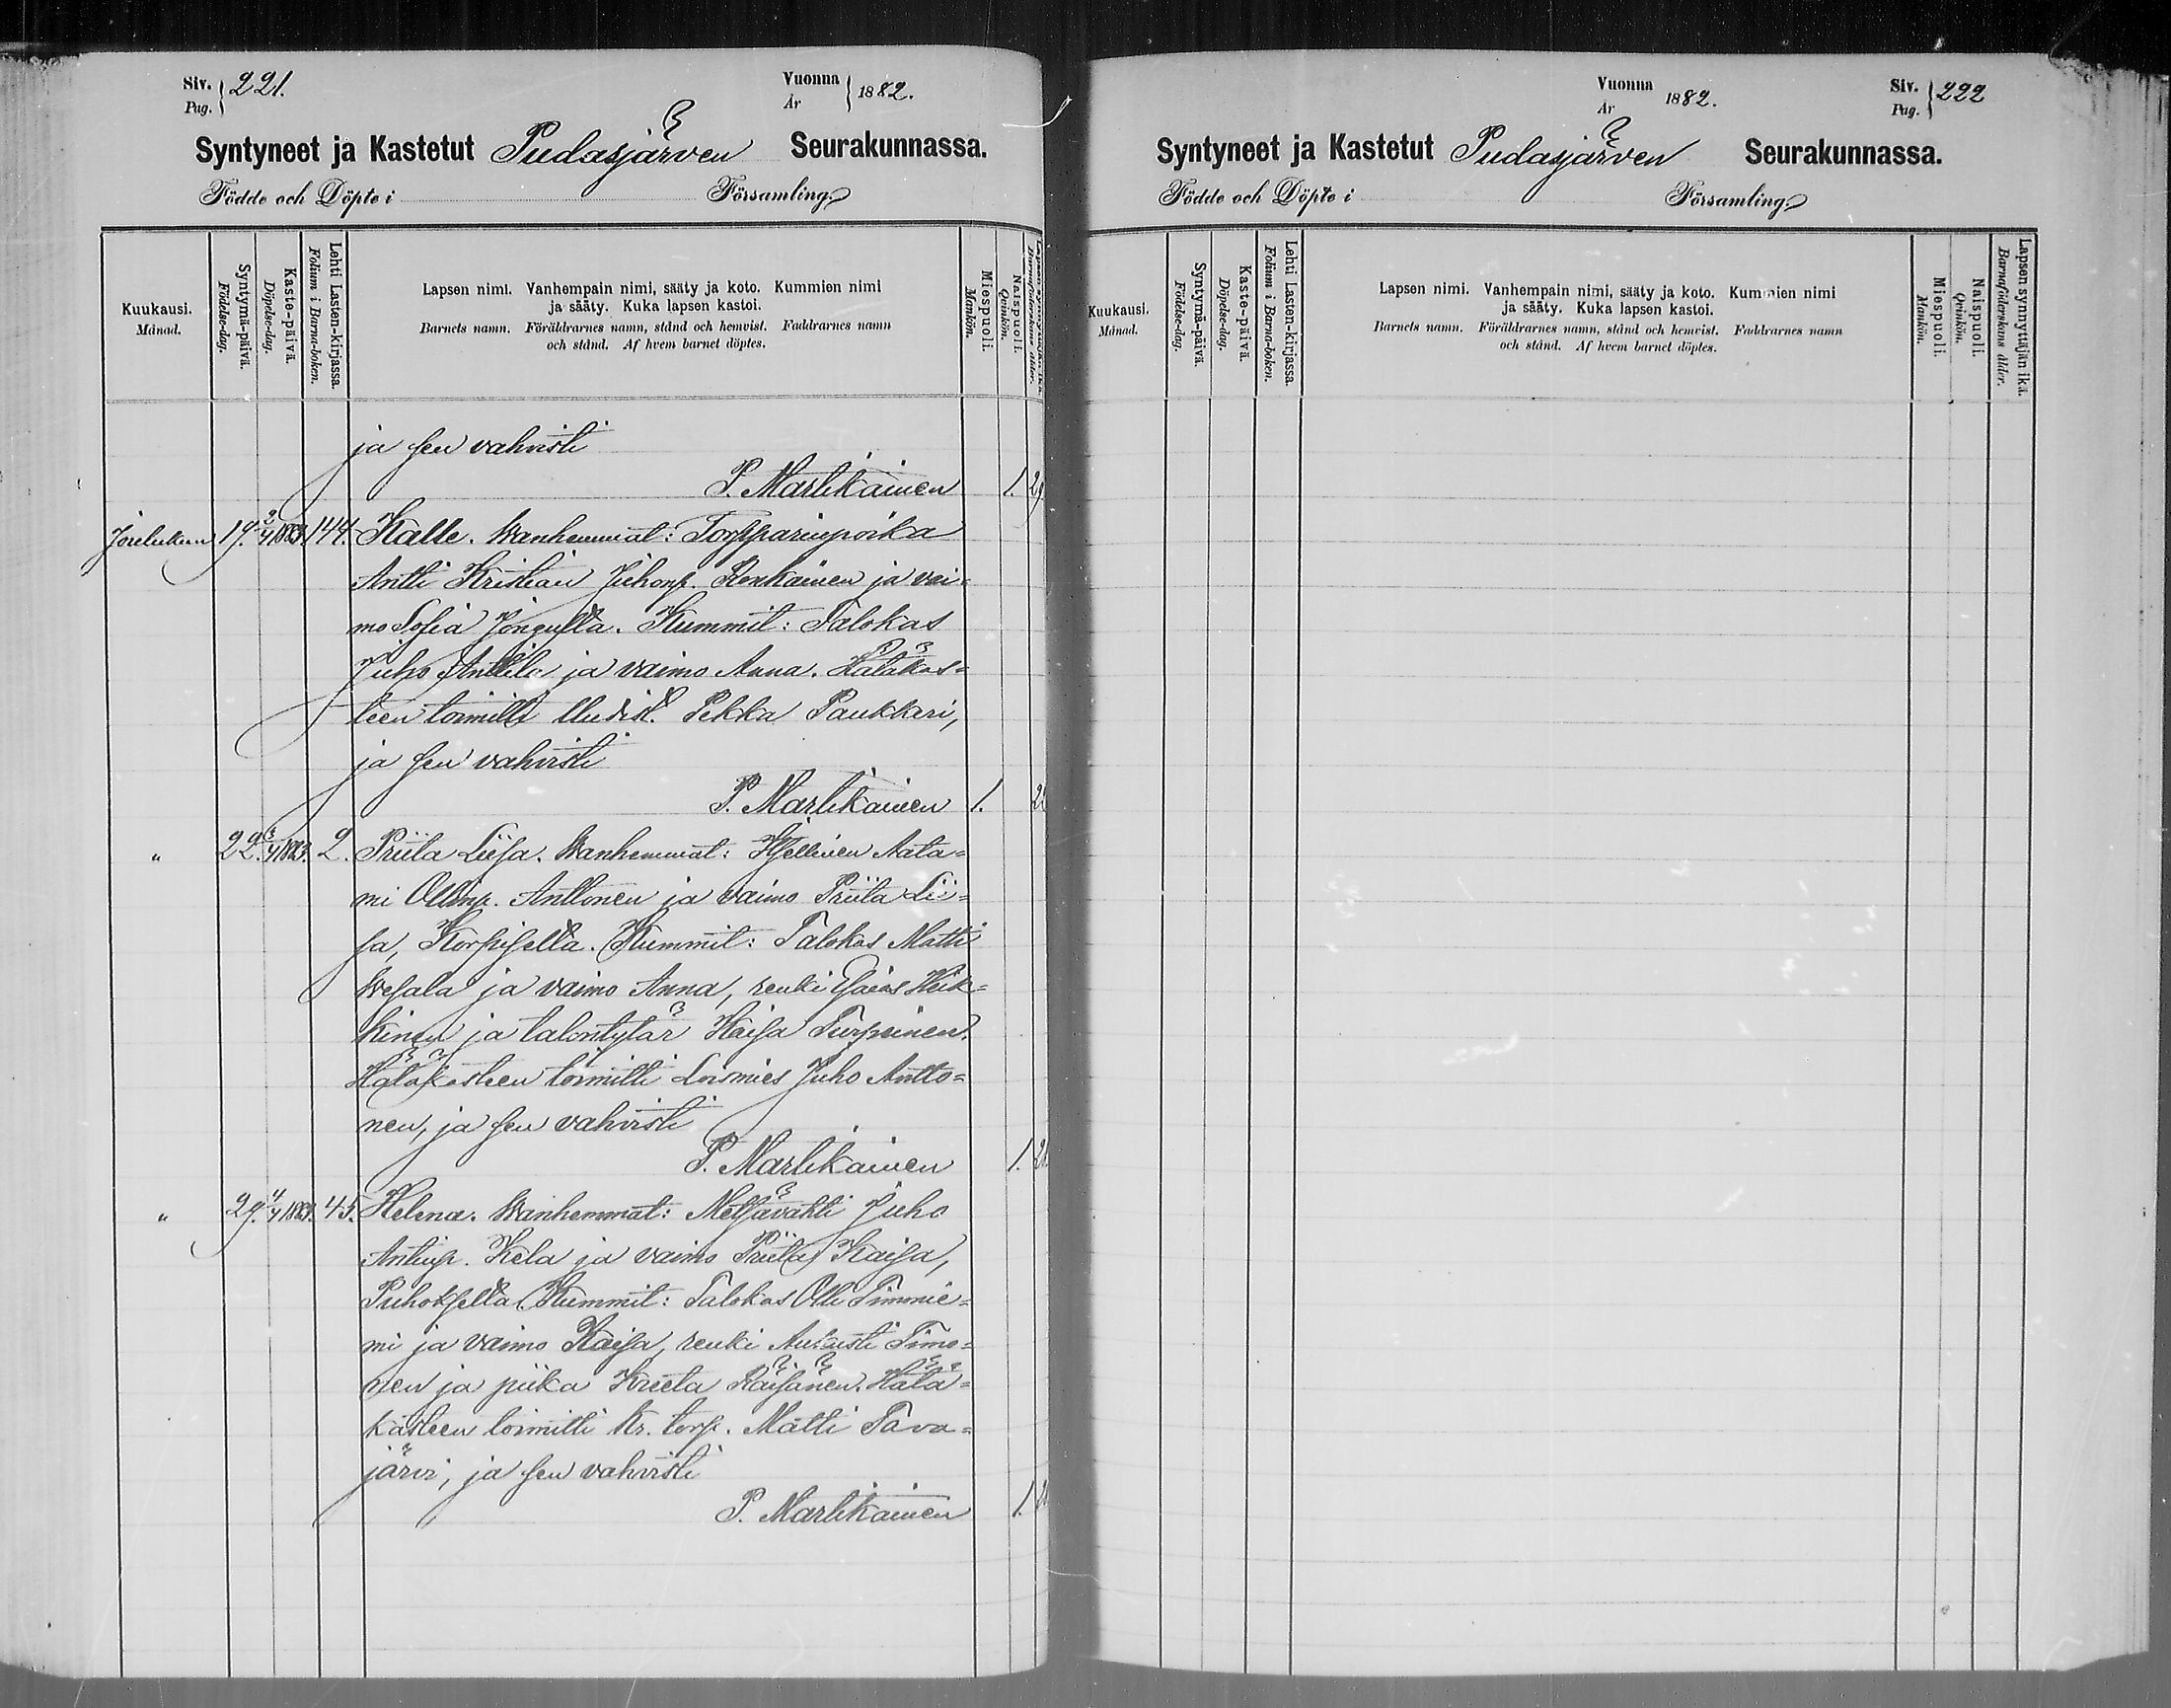 Siv. 221.
Pag.
Vuonna 1882.
År
Syntyneet ja Kastetut Pudasjärven Seurakunnassa.
Födde och Döpte i Församling
Kuukausi.
Månad.
Syntymä-päivä.
Födelse-dag.
Kaste-päivä.
Döpelse-dag.
Lehti Lasten-kirjassa.
Folium i Barna-boken.
Lapsen nimi. Vanhempain nimi, sääty ja koto. Kummien nimi
ja sääty. Kuka lapsen kastoi.
Barnets namn. Föräldrarnes namn, stånd och hemvist. Faddrarnes namn
och stånd. Af hvem barnet döptes.
Miespuoli.
Mankön.
Naispuoli.
Qvinkön.
ja sen vahvisti
P. Martikainen 1. 29.
Joulukuu 19. 3/4 1883. 144. Kalle. Wanhemmat: Torpparinpoika
Antti Kristian Juhonp. Ronkainen ja vai=
mo Sofia Jongulla. Kummit: Talokas
Juho Anttila ja vaimo Anna. Hätäkas=
teen toimitti Uudist. Pekka Paukkeri,
ja sen vahvisti
P. Martikainen 1.
" 22. 3/4 1883. 2. Priita Liisa. Wanhemmat: Itsellinen Aata=
mi Ollinp. Anttonen ja vaimo Priita Lii=
sa, Korpisella. Kummit: Talokas Matti
Wesala ja vaimo Anna, renki Esaias Heik=
kinen ja talontytär Kaisa Turpeinen.
Hätäkasteen toimitti Loismies Juho Antto=
nen, ja sen vahvisti
P. Martikainen 1.
" 29. 4/4 1883. 45. Helena. Wanhemmat: Metsävahti Juho
Antinp. Kela ja vaimo Priita Kaisa,
Puhoksella. Kummit: Talokas Olli Timonie=
mi ja vaimo Kaisa, renki Aukusti Timo=
nen ja piika Kreeta Räisänen. Hätä=
kasteen toimitti Kr. torp. Matti Tava=
järvi, ja sen vahvisti
P. Martikainen 1.
Vuonna 1882.
År
Siv. 222
Pag.
Syntyneet ja Kastetut Pudasjärven Seurakunnassa.
Födde och Döpte i Församling
Kuukausi.
Månad.
Syntymä-päivä.
Födelse-dag.
Kaste-päivä.
Döpelse-dag.
Lehti Lasten-kirjassa.
Folium i Barna-boken.
Lapsen nimi. Vanhempain nimi, sääty ja koto. Kummien nimi
ja sääty. Kuka lapsen kastoi.
Barnets namn. Föräldrarnes namn, stånd och hemvist. Faddrarnes namn
och stånd. Af hvem barnet döptes.
Miespuoli.
Mankön.
Naispuoli.
Qvinkön.
Lapsen synnyttäjän ikä.
Barnaföderskans ålder.